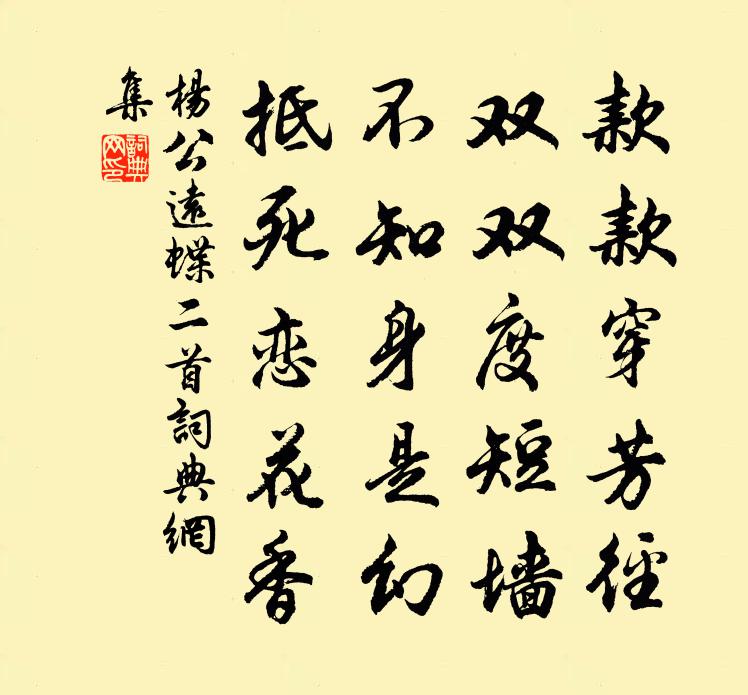 款款穿芳径
双双度短墙
不知身是幻
抵死恋花香
楊公遠蝶二首詞典網
集
詞典
网印